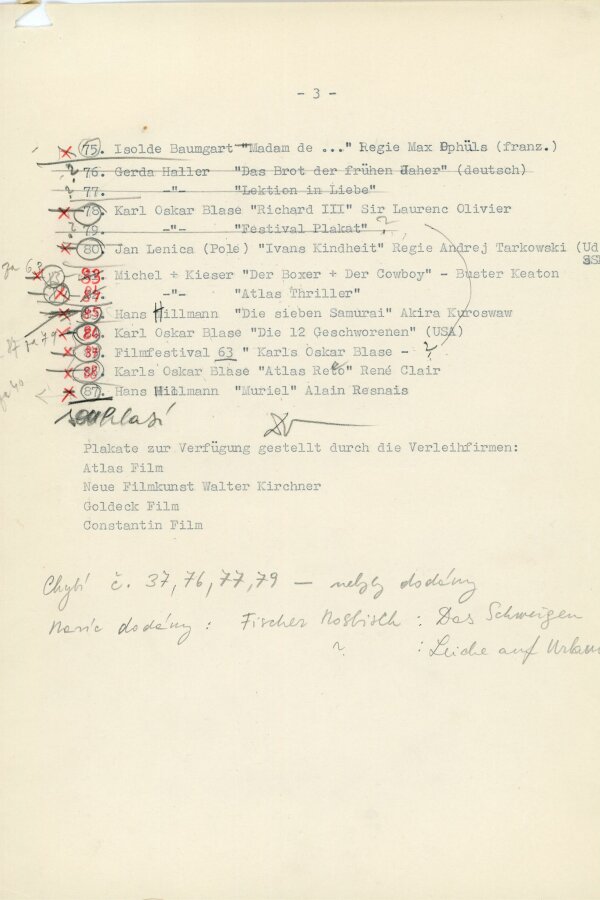 - 3 -
75. Isolde Baumgart "Madam de ..." Regie Max Ophüls (franz.)
? 76. Gerda Haller "Das Brot der frühen Jaher" (deutsch)
? 77. -"- "Lektion in Liebe"
78. Karl Oskar Blase "Richard III" Sir Laurenc Olivier
? 79. -"- "Festival Plakat" ?
80. Jan Lenica (Pole) "Ivans Kindheit" Regie Andrej Tarkowski (Ud
SSR
Michel + Kieser "Der Boxer + Der Cowboy" - Buster Keaton
-"- "Atlas Thriller"
85. Hans Hillmann "Die sieben Samurai" Akira Kuroswaw
86. Karl Oskar Blase "Die 12 Geschworenen" (USA)
Filmfestival 63 " Karls Oskar Blase - ?
Karls Oskar Blase "Atlas Reto" René Clair
87. Hans Hillmann "Muriel" Alain Resnais
souhlasí
Plakate zur Verfügung gestellt durch die Verleihfirmen:
Atlas Film
Neue Filmkunst Walter Kirchner
Goldeck Film
Constantin Film
Chybí č. 37, 76, 77, 79 — nebyly dodány
Navíc dodány : Fischer Nosbisch : Das Schweigen
? : Leiche auf Urlaub